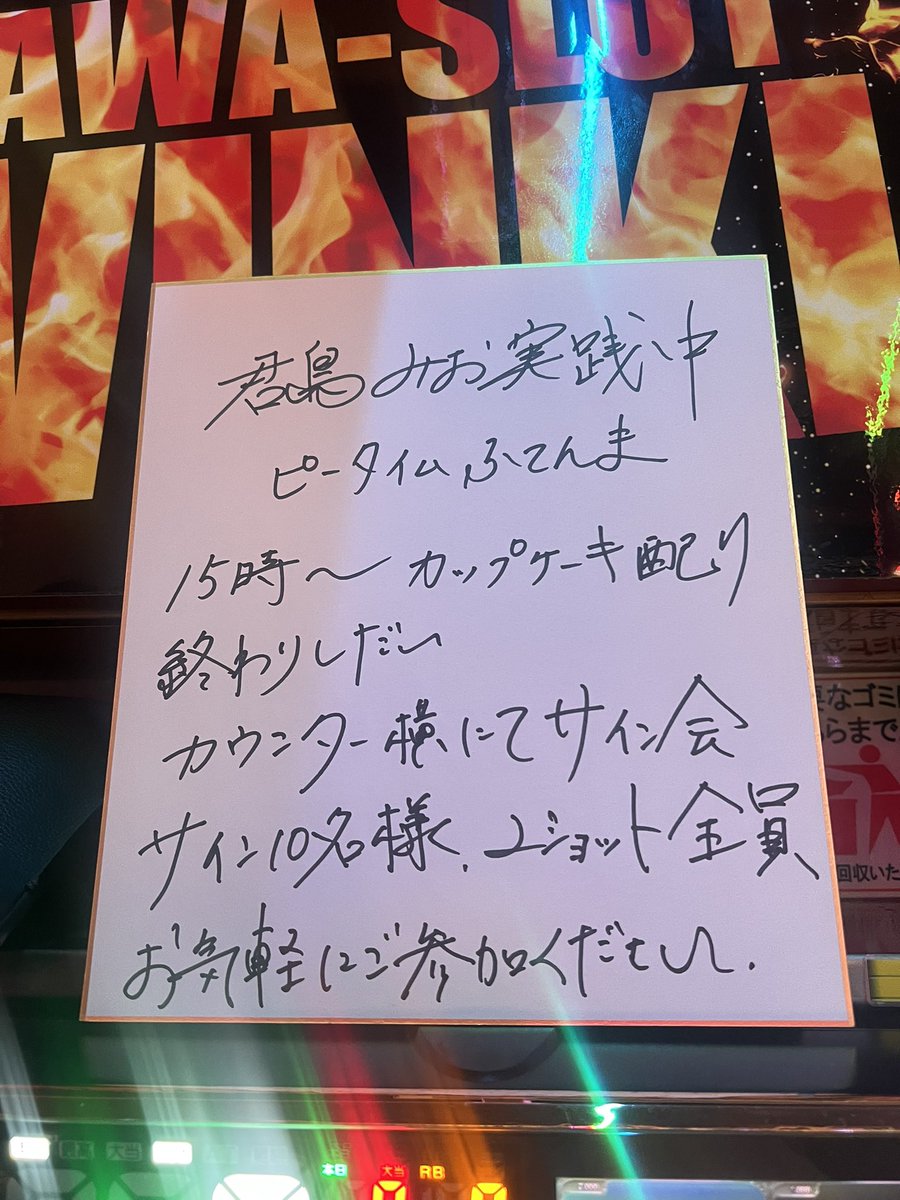 AWA-SLOT
君島みお実践中
ピータイムふてんま
15時〜カップケーキ配り
終わりしだい
カウンター横にてサイン会
サイン10名様、2ショット全員
お気軽にご参加ください。
なゴミ
らまで
回収いた
本日 大当 RB